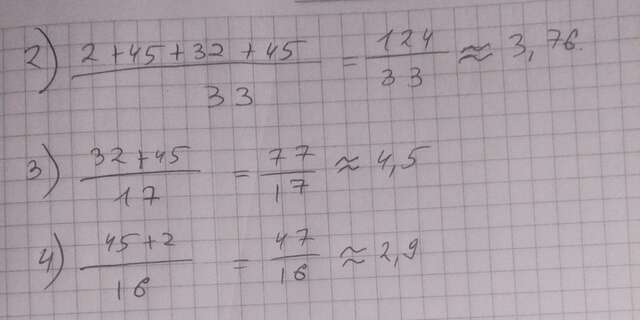 2) (2+45+32+45)/33 = 124/33 ≈ 3,76.
3) (32+45)/17 = 77/17 ≈ 4,5
4) (45+2)/16 = 47/16 ≈ 2,9